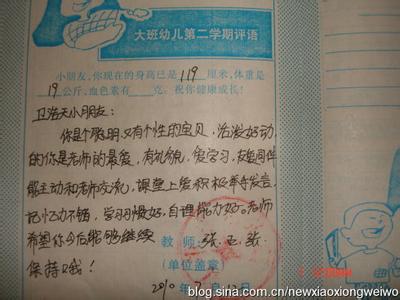 大班幼儿第二学期评语
小朋友,你现在的身高已是119厘米,体重是
19公斤,血色素有 克。祝你健康成长!
卫浩天小朋友:
你是个聪明又有个性的宝贝,活泼好动
的你是老师的最爱,有礼貌,爱学习,友爱同伴
能主动和老师交流,课堂上爱积极举手发言,
记忆力不错,学习习惯好,自理能力好。老师
希望你今后能够继续 教师:张
保持哦!
(单位盖章)
2010年7月12日
blog.sina.com.cn/newxiaoxiongweiwo